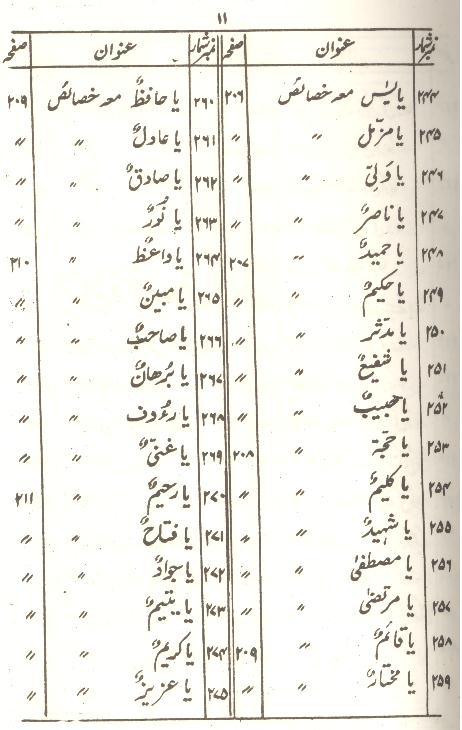 ۱۱
نمبر شمار عنوان صفحہ نمبر شمار عنوان صفحہ
۲۴۴ یا یٰسٓ معہ خصائص ۲۰۶ ۲۶۰ یا حافظٌ معہ خصائص ۲۰۹
۲۴۵ یا مزّمل 〃 〃 ۲۶۱ یا عادلٌ 〃 〃
۲۴۶ یا وَلیّ 〃 〃 ۲۶۲ یا صادقٌ 〃 〃
۲۴۷ یا ناصرٌ 〃 〃 ۲۶۳ یا نُورٌ 〃 〃
۲۴۸ یا حمیدٌ 〃 ۲۰۷ ۲۶۴ یا واعظٌ 〃 ۲۱۰
۲۴۹ یا حکیمٌ 〃 〃 ۲۶۵ یا مبینٌ 〃 〃
۲۵۰ یا مدّثر 〃 〃 ۲۶۶ یا صاحبٌ 〃 〃
۲۵۱ یا شفیعٌ 〃 〃 ۲۶۷ یا بُرھانٌ 〃 〃
۲۵۲ یا حبیبٌ 〃 〃 ۲۶۸ یا رءُوف 〃 〃
۲۵۳ یا حجّة 〃 ۲۰۸ ۲۶۹ یا غنیٌّ 〃 〃
۲۵۴ یا کلیمٌ 〃 〃 ۲۷۰ یا رحیمٌ 〃 ۲۱۱
۲۵۵ یا شہیدٌ 〃 〃 ۲۷۱ یا فتاحٌ 〃 〃
۲۵۶ یا مصطفیٰ 〃 〃 ۲۷۲ یا جوادٌ 〃 〃
۲۵۷ یا مرتضیٰ 〃 〃 ۲۷۳ یا یتیمٌ 〃 〃
۲۵۸ یا قائمٌ 〃 ۲۰۹ ۲۷۴ یا کریمٌ 〃 〃
۲۵۹ یا مختارٌ 〃 〃 ۲۷۵ یا عزیزٌ 〃 〃